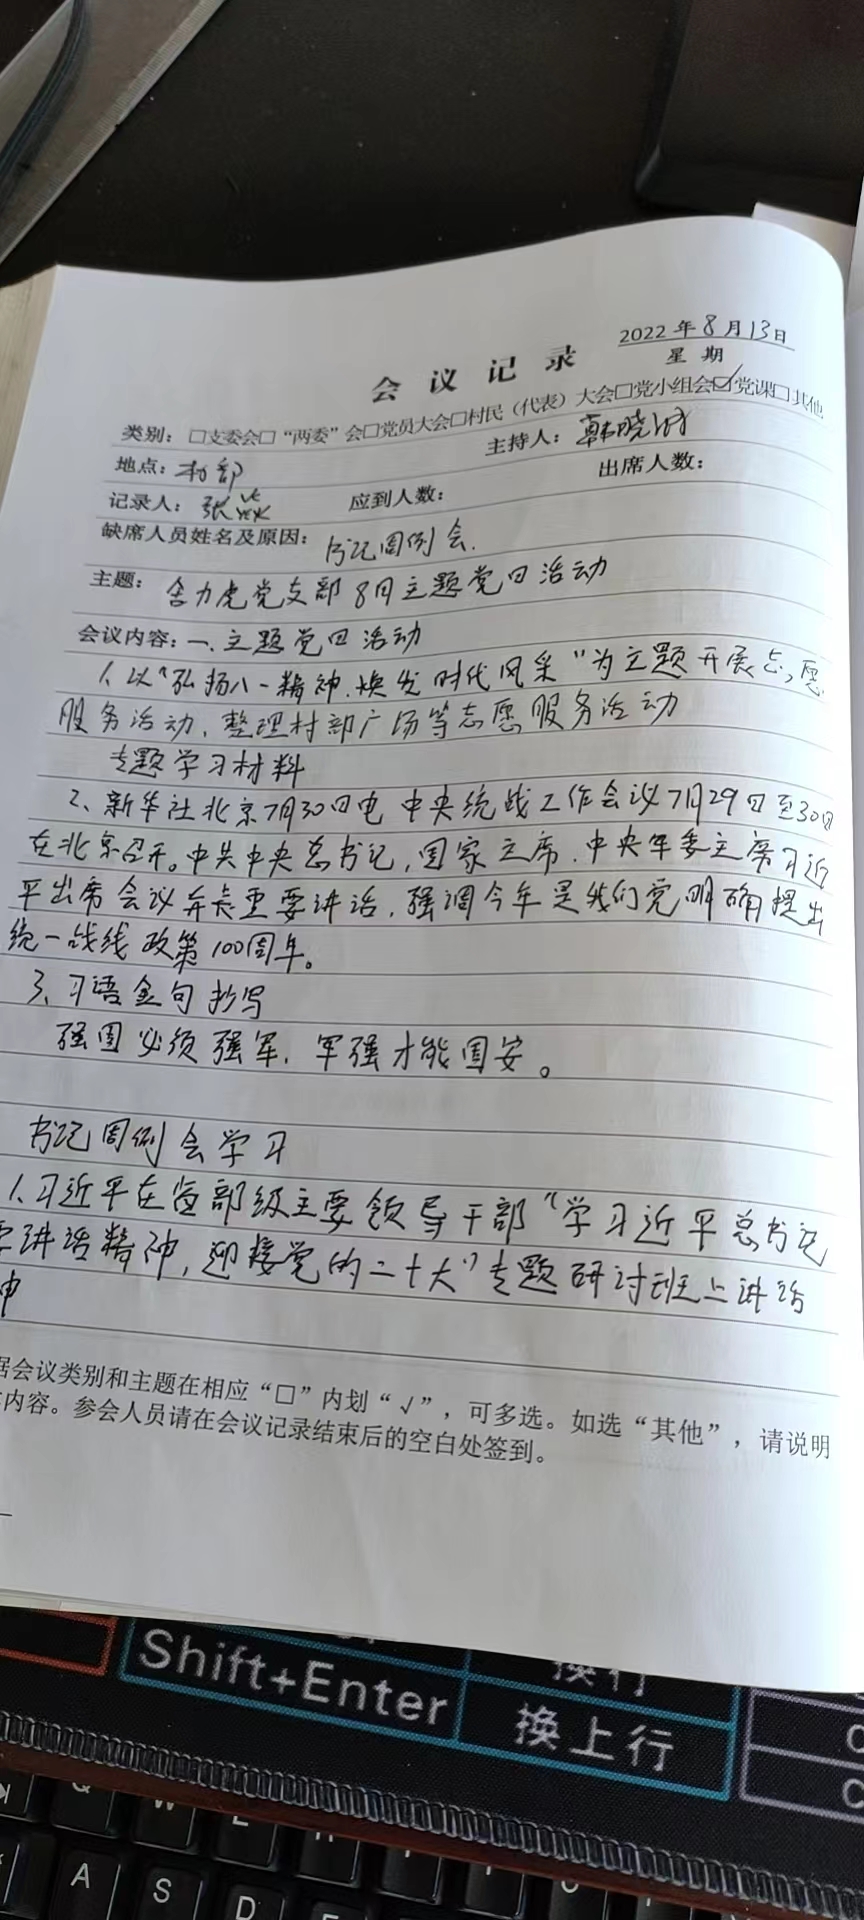 2022年8月13日
会 议 记 录 星 期
类别：□支委会□“两委”会□党员大会□村民（代表）大会□党小组会☑党课□其他
地点：村部 主持人：韩晓
记录人：张 应到人数： 出席人数：
缺席人员姓名及原因：
书记周例会.
主题：舍力虎党支部8月主题党日活动
会议内容：一、主题党日活动
1、以“弘扬八一精神.焕发时代风采”为主题开展志愿
服务活动、整理村部广场等志愿服务活动
专题学习材料
2、新华社北京7月30日电 中央统战工作会议7月29日至30日
在北京召开。中共中央总书记,国家主席.中央军委主席习近
平出席会议并表重要讲话,强调今年是我们党明确提出
统一战线政策100周年。
3、习语金句抄写
强国必须强军,军强才能国安。
书记周例会学习
1、习近平在省部级主要领导干部“学习近平总书记
要讲话精神,迎接党的二十大”专题研讨班上讲话
神
据会议类别和主题在相应“□”内划“√”，可多选。如选“其他”，请说明
内容。参会人员请在会议记录结束后的空白处签到。
换行
Shift+Enter 换上行
C
C
Q W E
A S D